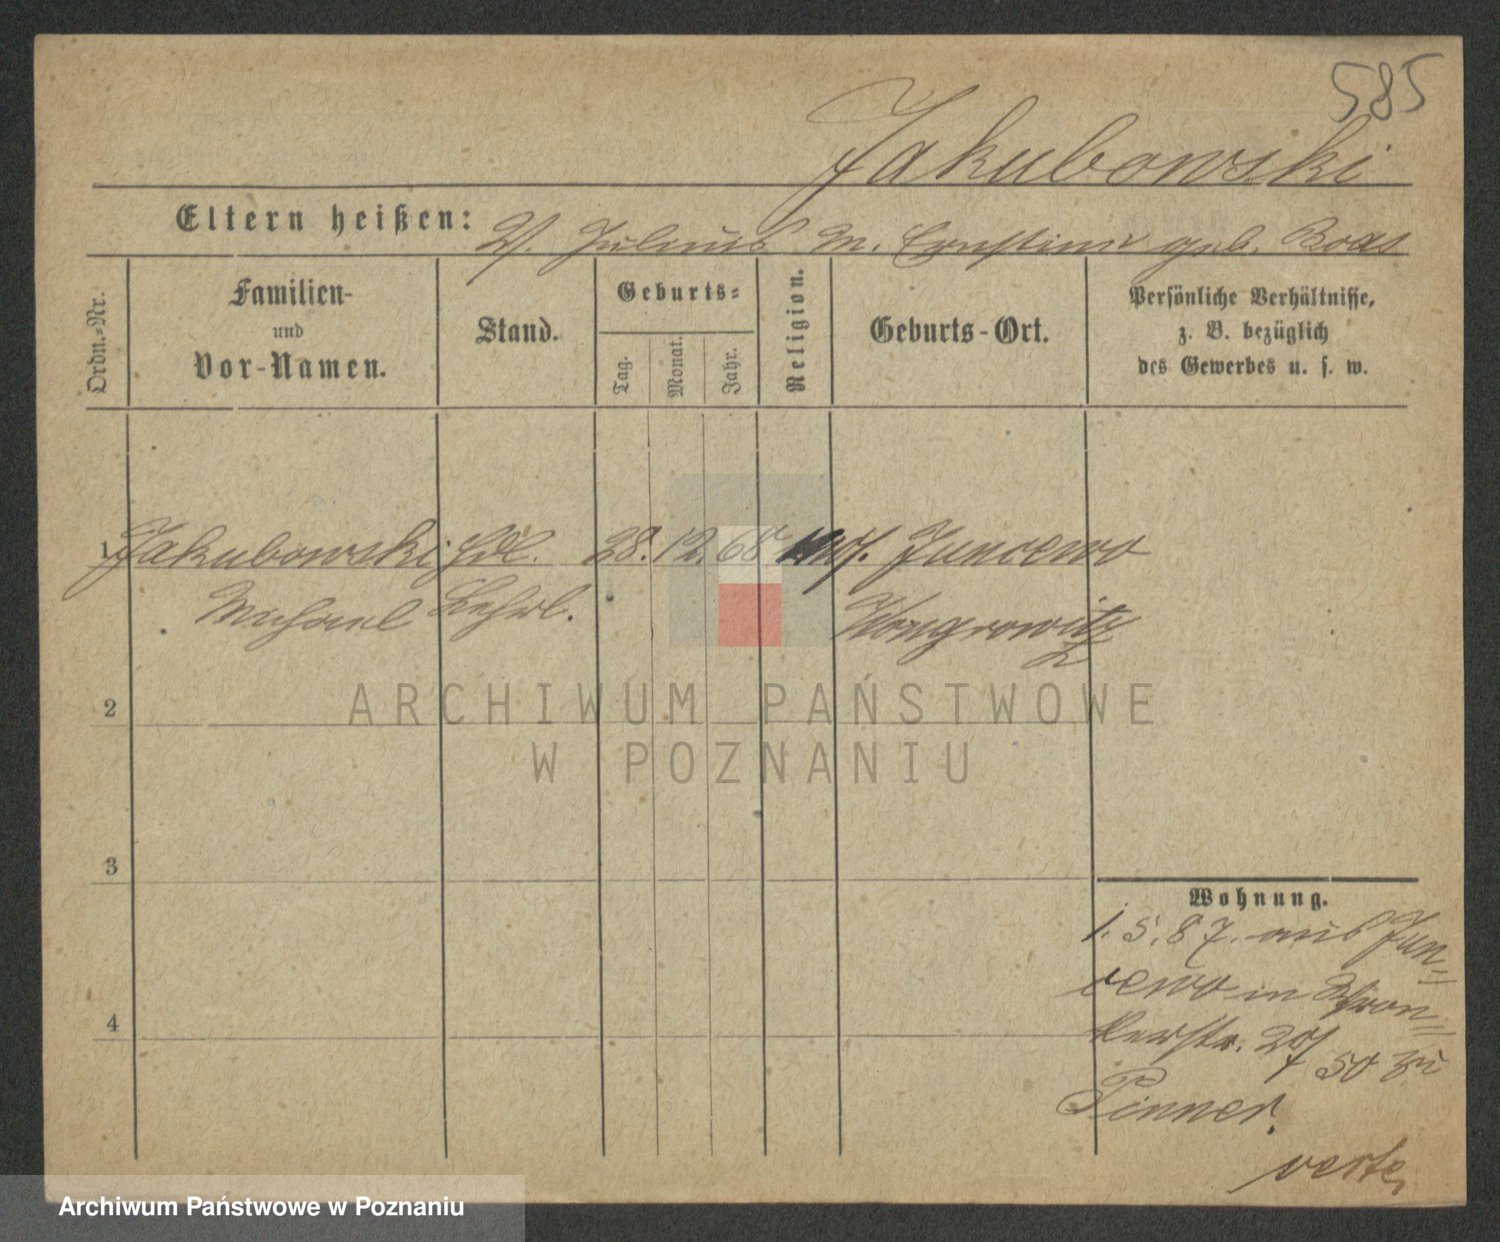 585
Jakubowski
Eltern heißen: V. Julius M. Ernstine geb. Boas
Ordn.-Nr.
Familien-
und
Vor-Namen.
Stand.
Geburts-
Tag.
Monat.
Jahr.
Religion.
Geburts-Ort.
Persönliche Verhältnisse,
z. B. bezüglich
des Gewerbes u. s. w.
1 Jakubowski Hdl. 28. 12. 68 Juncewo
Michael Lehrl. Wongrowitz
2
3
4
Wohnung.
1. 5. 87. aus Jun-
cewo in Wron-
kerstr. 20/
50 zu
Pinner.
verte,
ARCHIWUM PAŃSTWOWE
W POZNANIU
Archiwum Państwowe w Poznaniu